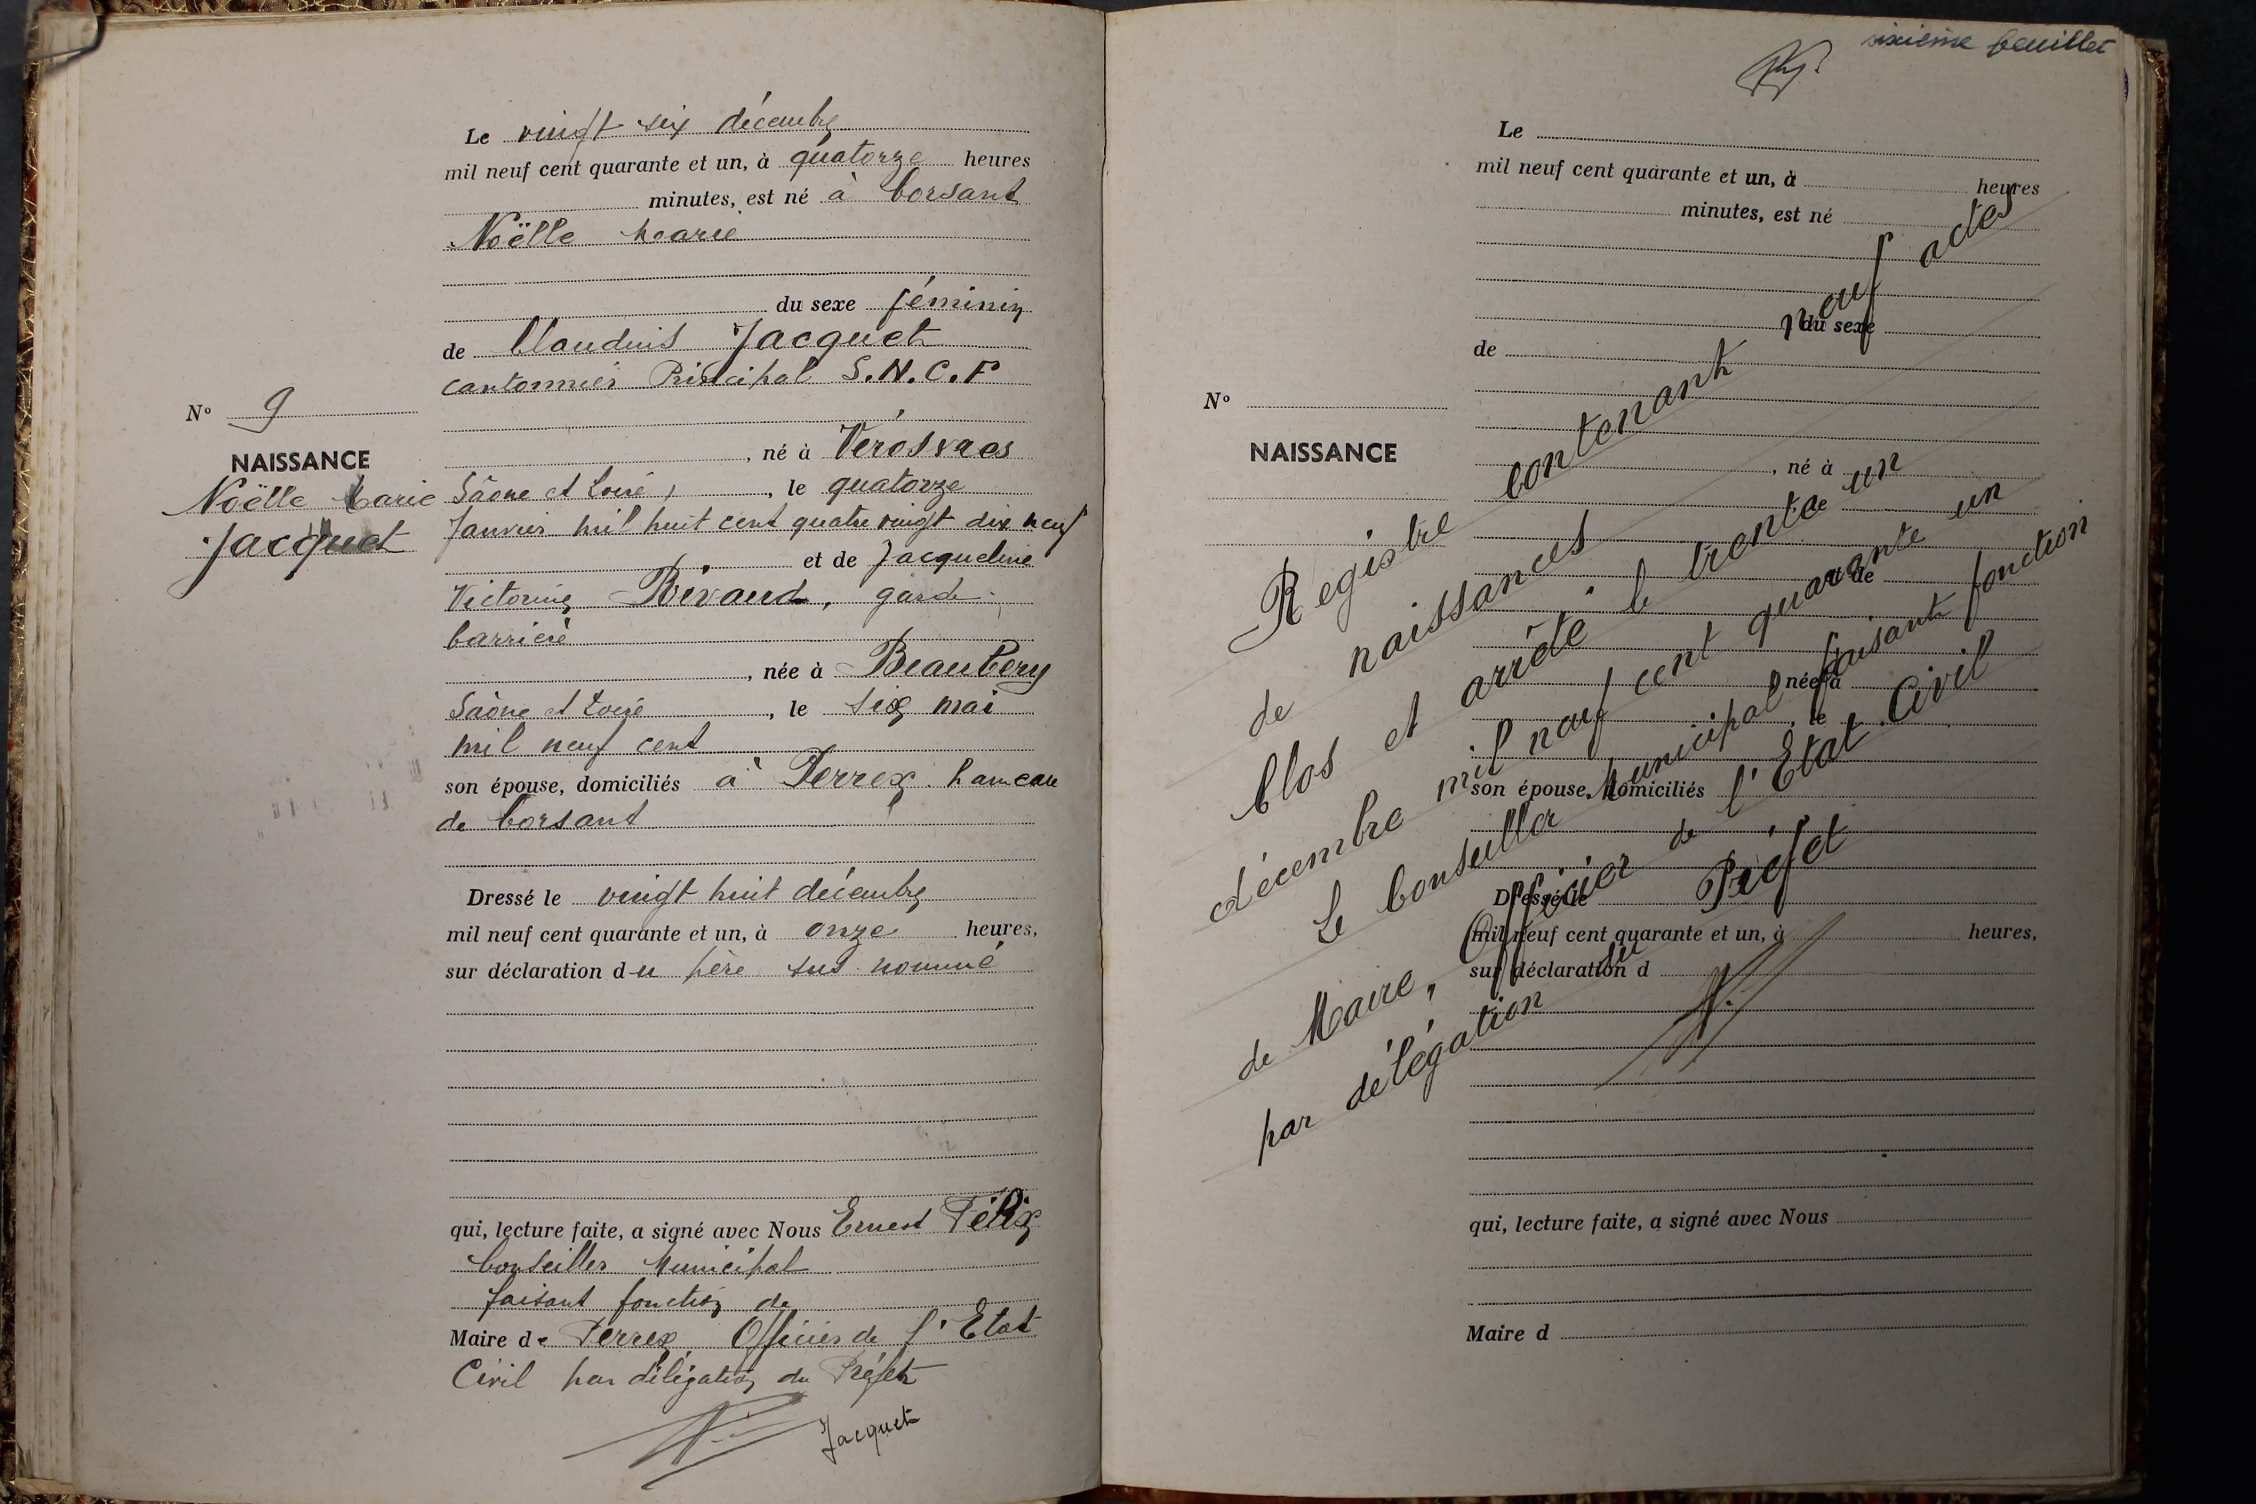 Le vingt six décembre
mil neuf cent quarante et un, à quatorze heures
minutes, est né à Corsant
Noëlle Marie
du sexe féminin
de Claudius Jacquet
cantonnier Principal S.N.C.F
, né à Vérosvres
Saône et Loire, , le quatorze
Janvier mil huit cent quatre vingt dix neuf
et de Jacqueline
Victorine Bivaud, garde
barrière
, née à Beaubery
Saône et Loire , le six mai
mil neuf cent
son épouse, domiciliés à Perrex hameau
de Corsant
Dressé le vingt huit décembre
mil neuf cent quarante et un, à onze heures,
sur déclaration du père sus nommé
qui, lecture faite, a signé avec Nous Ernest Félix
Conseiller Municipal
faisant fonction de
Maire de Perrex Officier de l'Etat
Civil par délégation du Préfet
Jacquet
N° 9
NAISSANCE
Noëlle Marie
Jacquet
sixième feuillet
Le
mil neuf cent quarante et un, à heures
minutes, est né
du sexe
de
N°
NAISSANCE
, né à
, le
et de
, née à
, le
son épouse, domiciliés
Dressé le
mil neuf cent quarante et un, à heures,
sur déclaration d
qui, lecture faite, a signé avec Nous
Maire d
Registre contenant neuf actes
de naissances
Clos et arrêté le trente un
décembre mil neuf cent quarante un
Le Conseiller Municipal faisant fonction
de Maire, Officier de l'Etat Civil
par délégation du Préfet